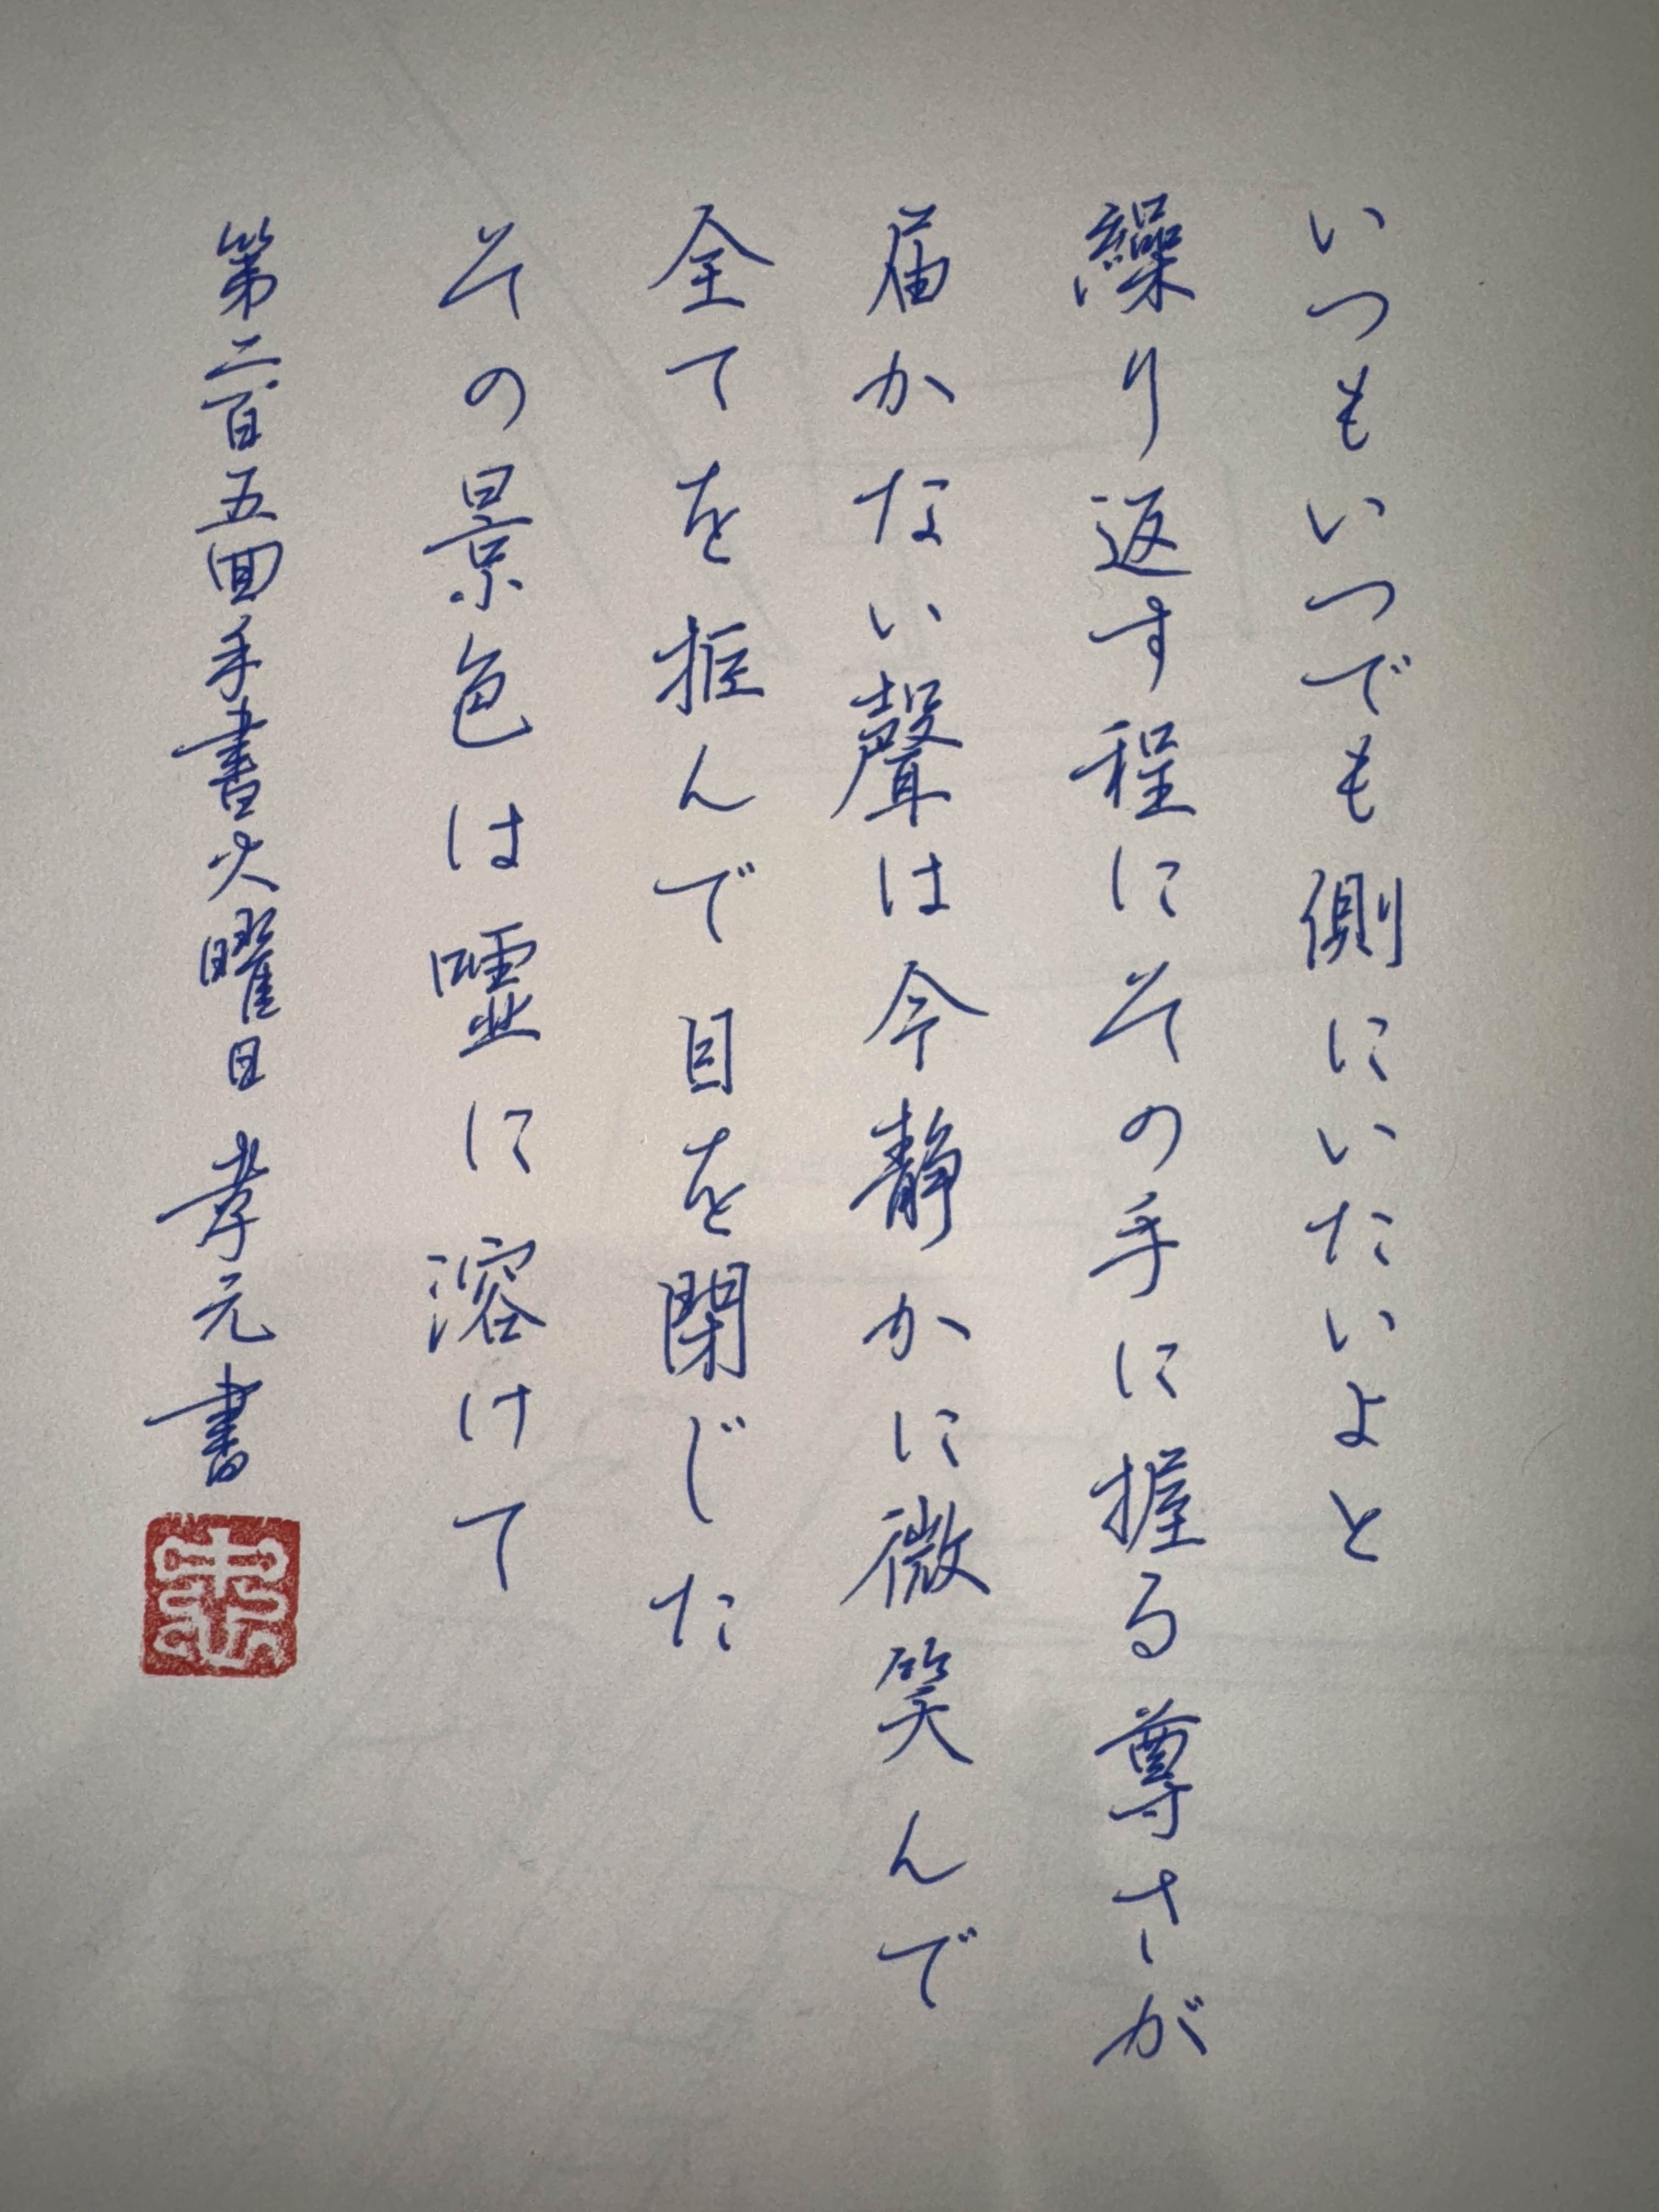 いつもいつでも側にいたいよと
繰り返す程にその手に握る尊さが
届かない聲は今静かに微笑んで
全てを拒んで目を閉じた
その景色は嘘に溶けて
第二百五回手書火曜日 孝元書